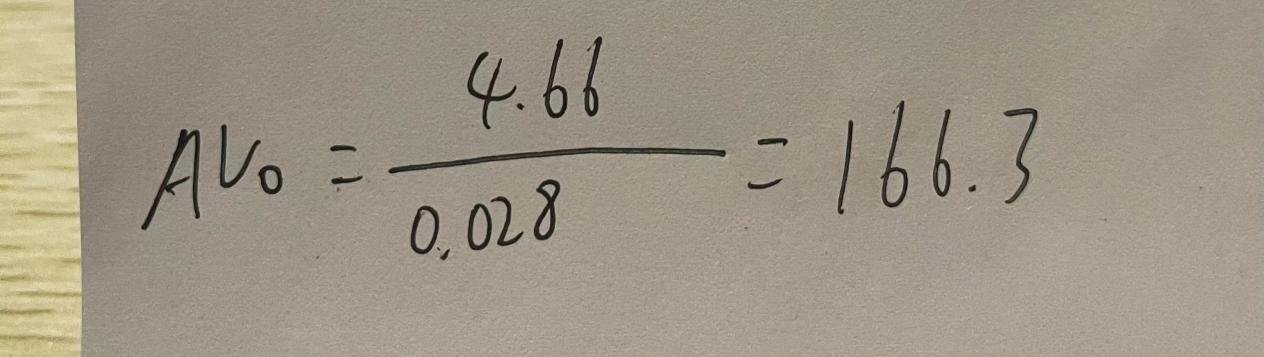 AV₀ = 4.66 / 0.028 = 166.3